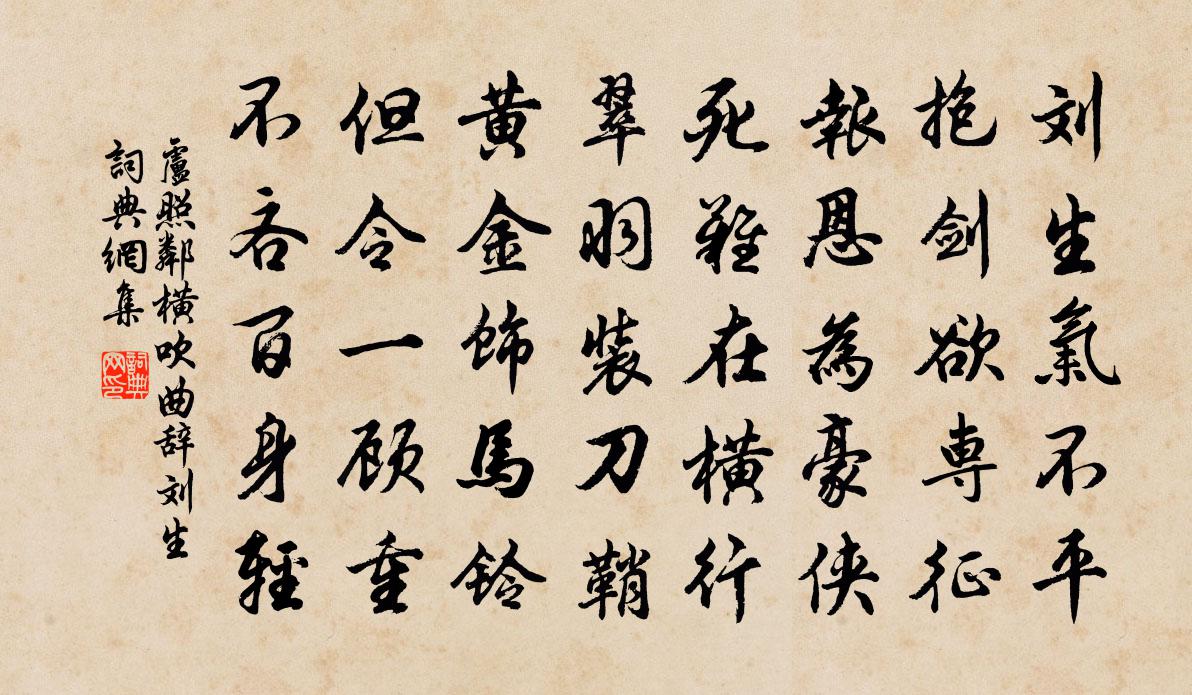 刘生氣不平
抱剑欲専征
報恩為豪侠
死難在横行
翠羽装刀鞘
黄金飾馬鈴
但令一顾重
不吝百身輕
盧照鄰横吹曲辞刘生
詞典網集
詞典网印